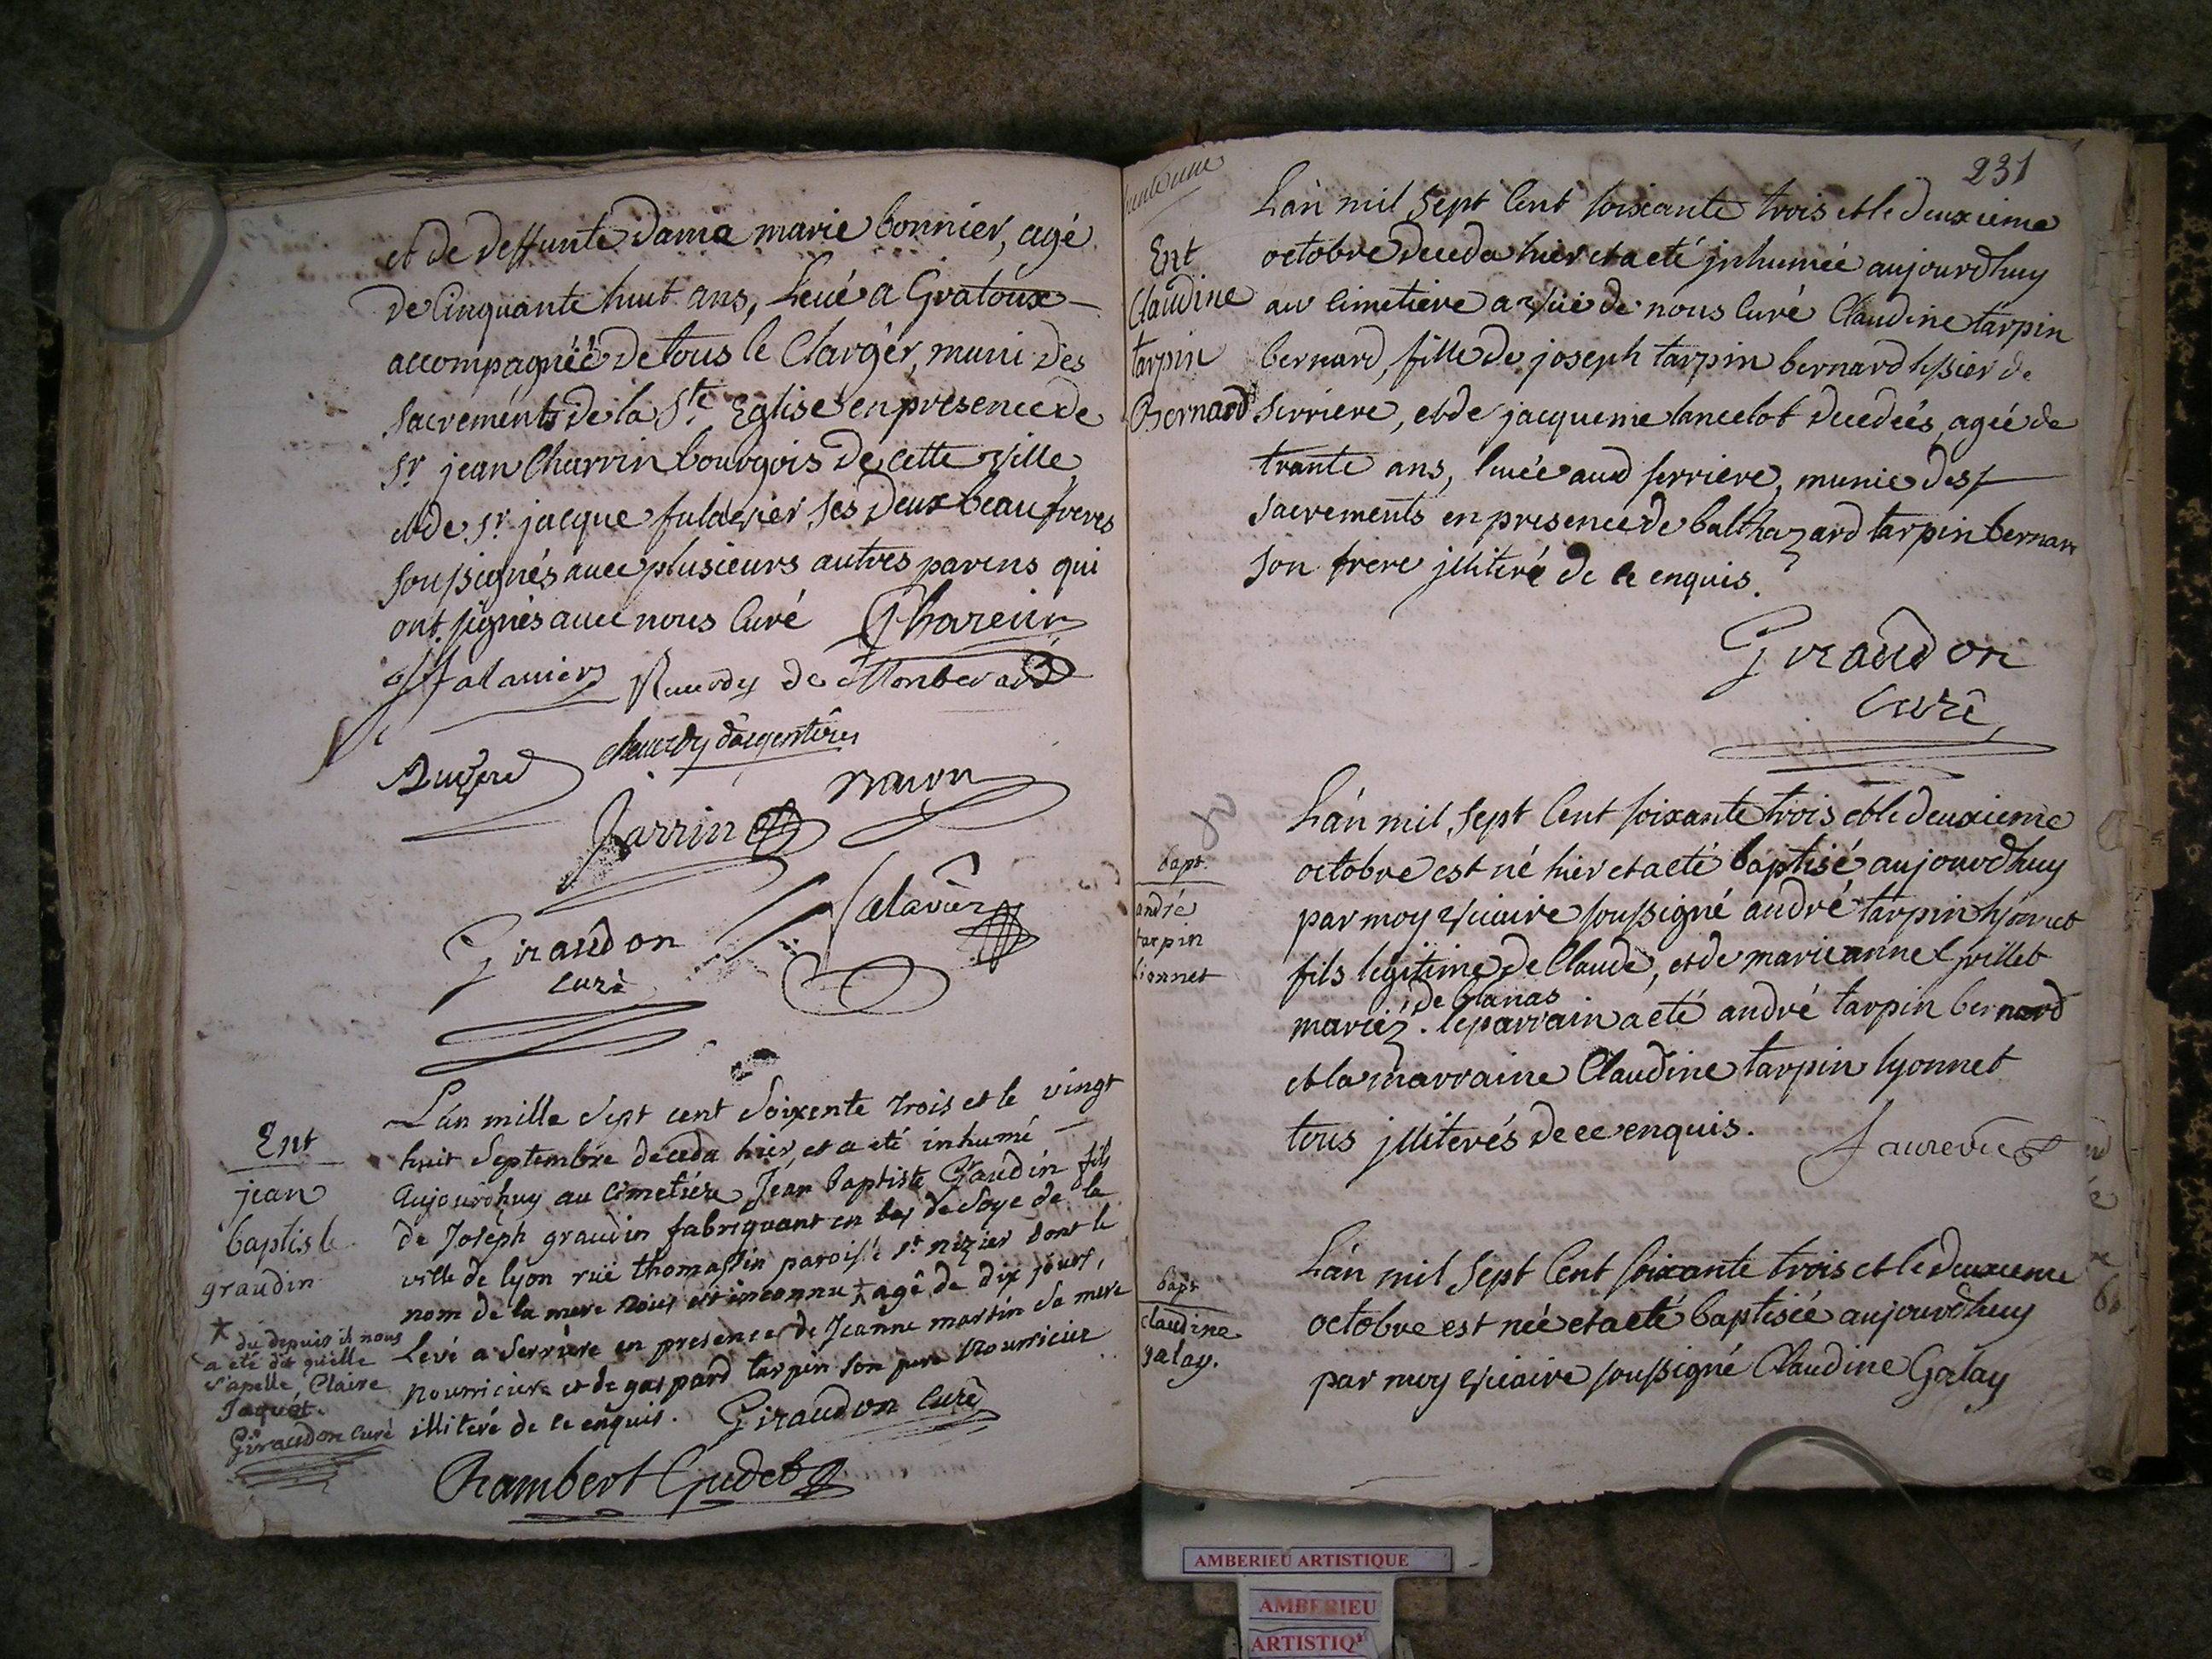 et de deffunte dame marie bonnier, agé
de Cinquante huit ans, Levé a Gratoux
accompagnéé de tous le Clargér, muni des
sacrements de la Ste Eglise en presence de
Sr jean Charrin bourgois de cette ville
et de Sr jacque falavier ses deux beau freres
soussignés avec plusieurs autres parens qui
ont signés avec nous Curé
falavier de Montberard
chaurdy dargentires
Jarrin
Giraudon
curé
falavier
Ent
jean
baptiste
graudin
* du depuis il nous
a eté dit quelle
s'apelle Claire
Jaquet.
Giraudon curé
Lan mille Sept cent Soixente trois et le vingt
huit Septembre deceda hier, et a eté inhumé
Aujourdhuy au Cimetiére Jean baptiste Graudin fils
de Joseph graudin fabriquant en bas de Soye de la
ville de lyon ruë thomassin paroisse st nizier dont le
nom de la mere nous est inconnu * agé de dix jours,
Levé a Serriére en presence de Jeanne martin Sa mere
nourriciere et de gaspard tarpin son pere Nourricier
illiteré de ce enquis. Giraudon Curé
Rambert Gudet
231
Ent
Claudine
tarpin
Bernard
Lan mil Sept Cent soixante trois et le deuxieme
octobre deceda hier et a eté jnhumée aujourdhuy
au Cimetiere a vüe de nous Curé Claudine tarpin
bernard, fille de joseph tarpin bernard tissier de
Serriere, et de jacqueme lancelot decedeés, agée de
trante ans, levée aud serriere, munie des
Sacrements en presence de balthazard tarpin bernar
Son frere jlliteré de ce enquis.
Giraudon
Curé
bapt.
andré
tarpin
lionnet
Lan mil Sept Cent soixante trois et le deuxieme
octobre est né hier et a eté baptisé aujourdhuy
par moy vicaire soussigné andré tarpin lyonnet
fils legitime de Claude, et de marieanne grillet
de blanas
mariéz. le parrain a eté andré tarpin bernard
et la marraine Claudine tarpin lyonnet
tous jlliterés de ce enquis.
bapt
claudine
galay.
Lan mil Sept Cent Soixante trois et le deuxieme
octobre est née et a eté baptisée aujourdhuy
par moy vicaire soussigné Claudine Galay
AMBERIEU ARTISTIQUE
AMBERIEU
ARTISTIQ